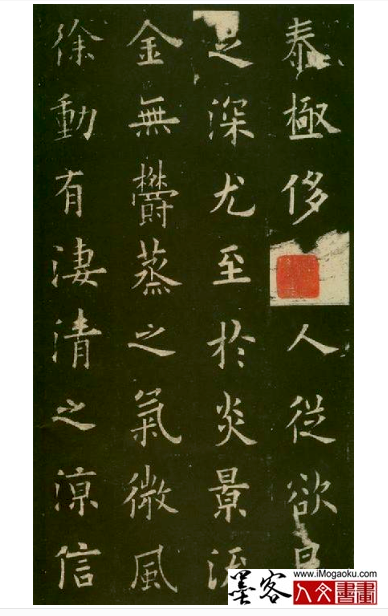 泰極侈人從欲
深尤至於炎景流
金無鬱蒸之氣微風
徐動有淒清之涼信
墨客
www.iMogaoku.com
人文書畫